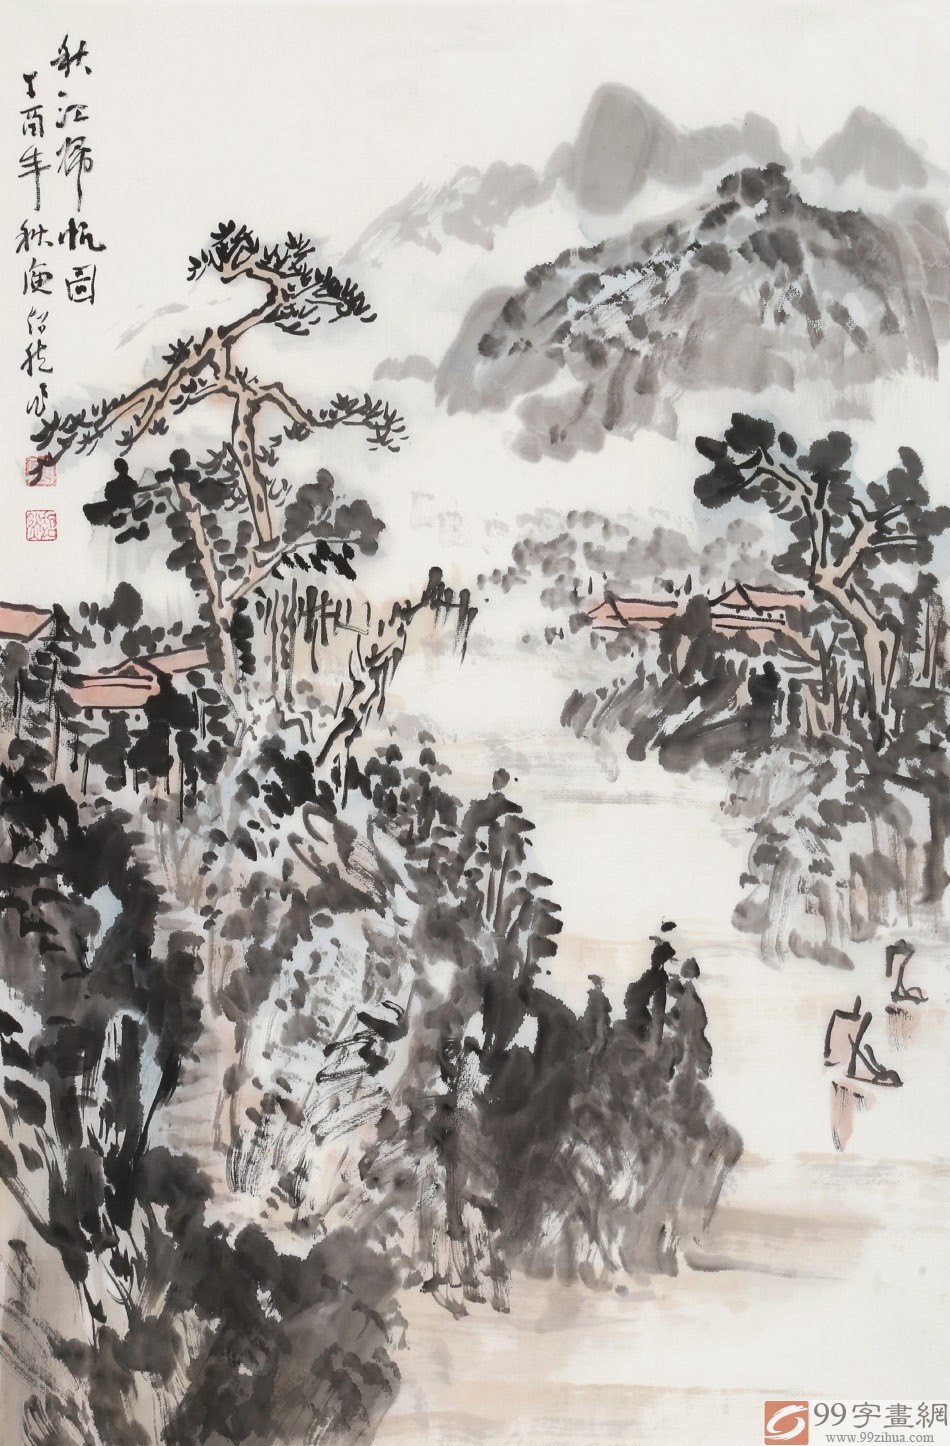 秋江歸帆圖
丁酉年秋庾紹棪作
99字畫網
www.99zihua.com